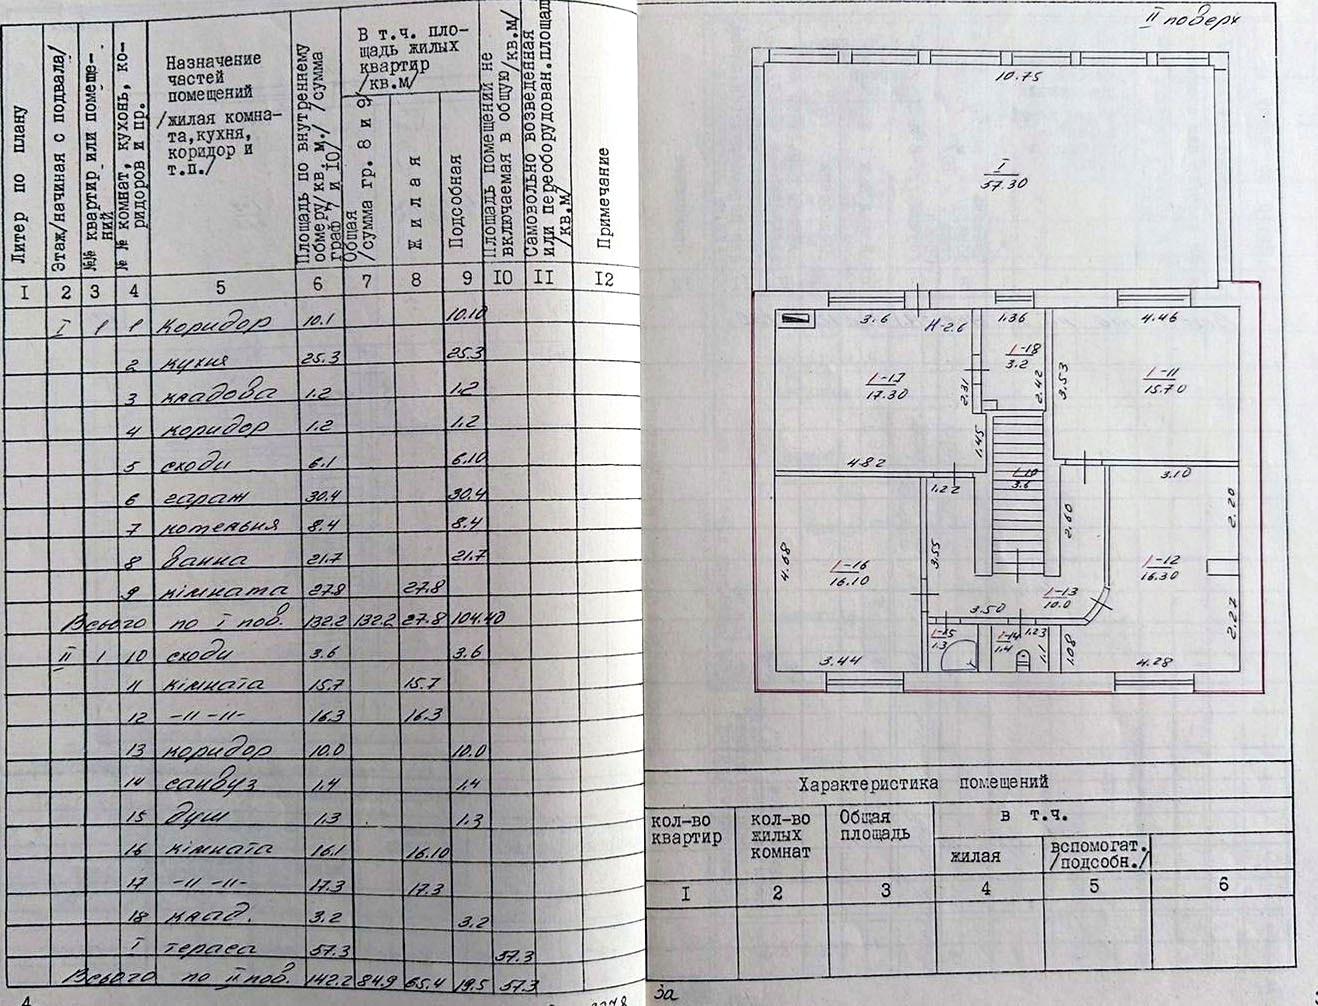 Литер по плану
Этаж/начиная с подвала/
№№ квартир или помеще-
ний
№ № комнат, кухонь, ко-
ридоров и пр.
Назначение
частей
помещений
/жилая комна-
та,кухня,
коридор и
т.п./
Площадь по внутреннему
обмеру/кв.м./ /сумма
граф 7 и 10/
В т.ч. пло-
щадь жилых
квартир
/кв.м/
Общая
/сумма гр. 8 и 9/
Жилая
Подсобная
Площадь помещений не
включаемая в общую/кв.м/
Самовольно возведенная
или переоборудован.площадь
/кв.м/
Примечание
I 2 3 4 5 6 7 8 9 10 II 12
I 1 1 коридор 10.1 10.10
2 кухня 25.3 25.3
3 кладова 1.2 1.2
4 коридор 1.2 1.2
5 сходи 6.1 6.10
6 гараж 30.4 30.4
7 котельня 8.4 8.4
8 ванна 21.7 21.7
9 кімната 27.8 27.8
Всього по I пов. 132.2 132.2 27.8 104.40
II 1 10 сходи 3.6 3.6
11 кімната 15.7 15.7
12 -II-II- 16.3 16.3
13 коридор 10.0 10.0
14 санвуз 1.4 1.4
15 душ 1.3 1.3
16 кімната 16.1 16.10
17 -II-II- 17.3 17.3
18 клад. 3.2 3.2
I тераса 57.3 57.3
Всього по II пов. 142.2 84.9 65.4 19.5 57.3
4
II поверх
10.75
I
57.30
3.6 H-2.6 1.36 4.46
1-18
3.2
1-17
17.30
2.31
2.42
3.53
1-11
15.70
1.45
4.82
1-10
3.6
3.10
1.22
2.20
2.60
3.55
4.68
1-16
16.10
1-12
16.30
1-13
10.0
3.50
1-15
1.3
1-14
1.4
1.23
1.1
1.08
2.22
3.44
4.28
Характеристика помещений
кол-во
квартир
кол-во
жилых
комнат
Общая
площадь
в т.ч.
жилая
вспомогат.
/подсобн./
I 2 3 4 5 6
за